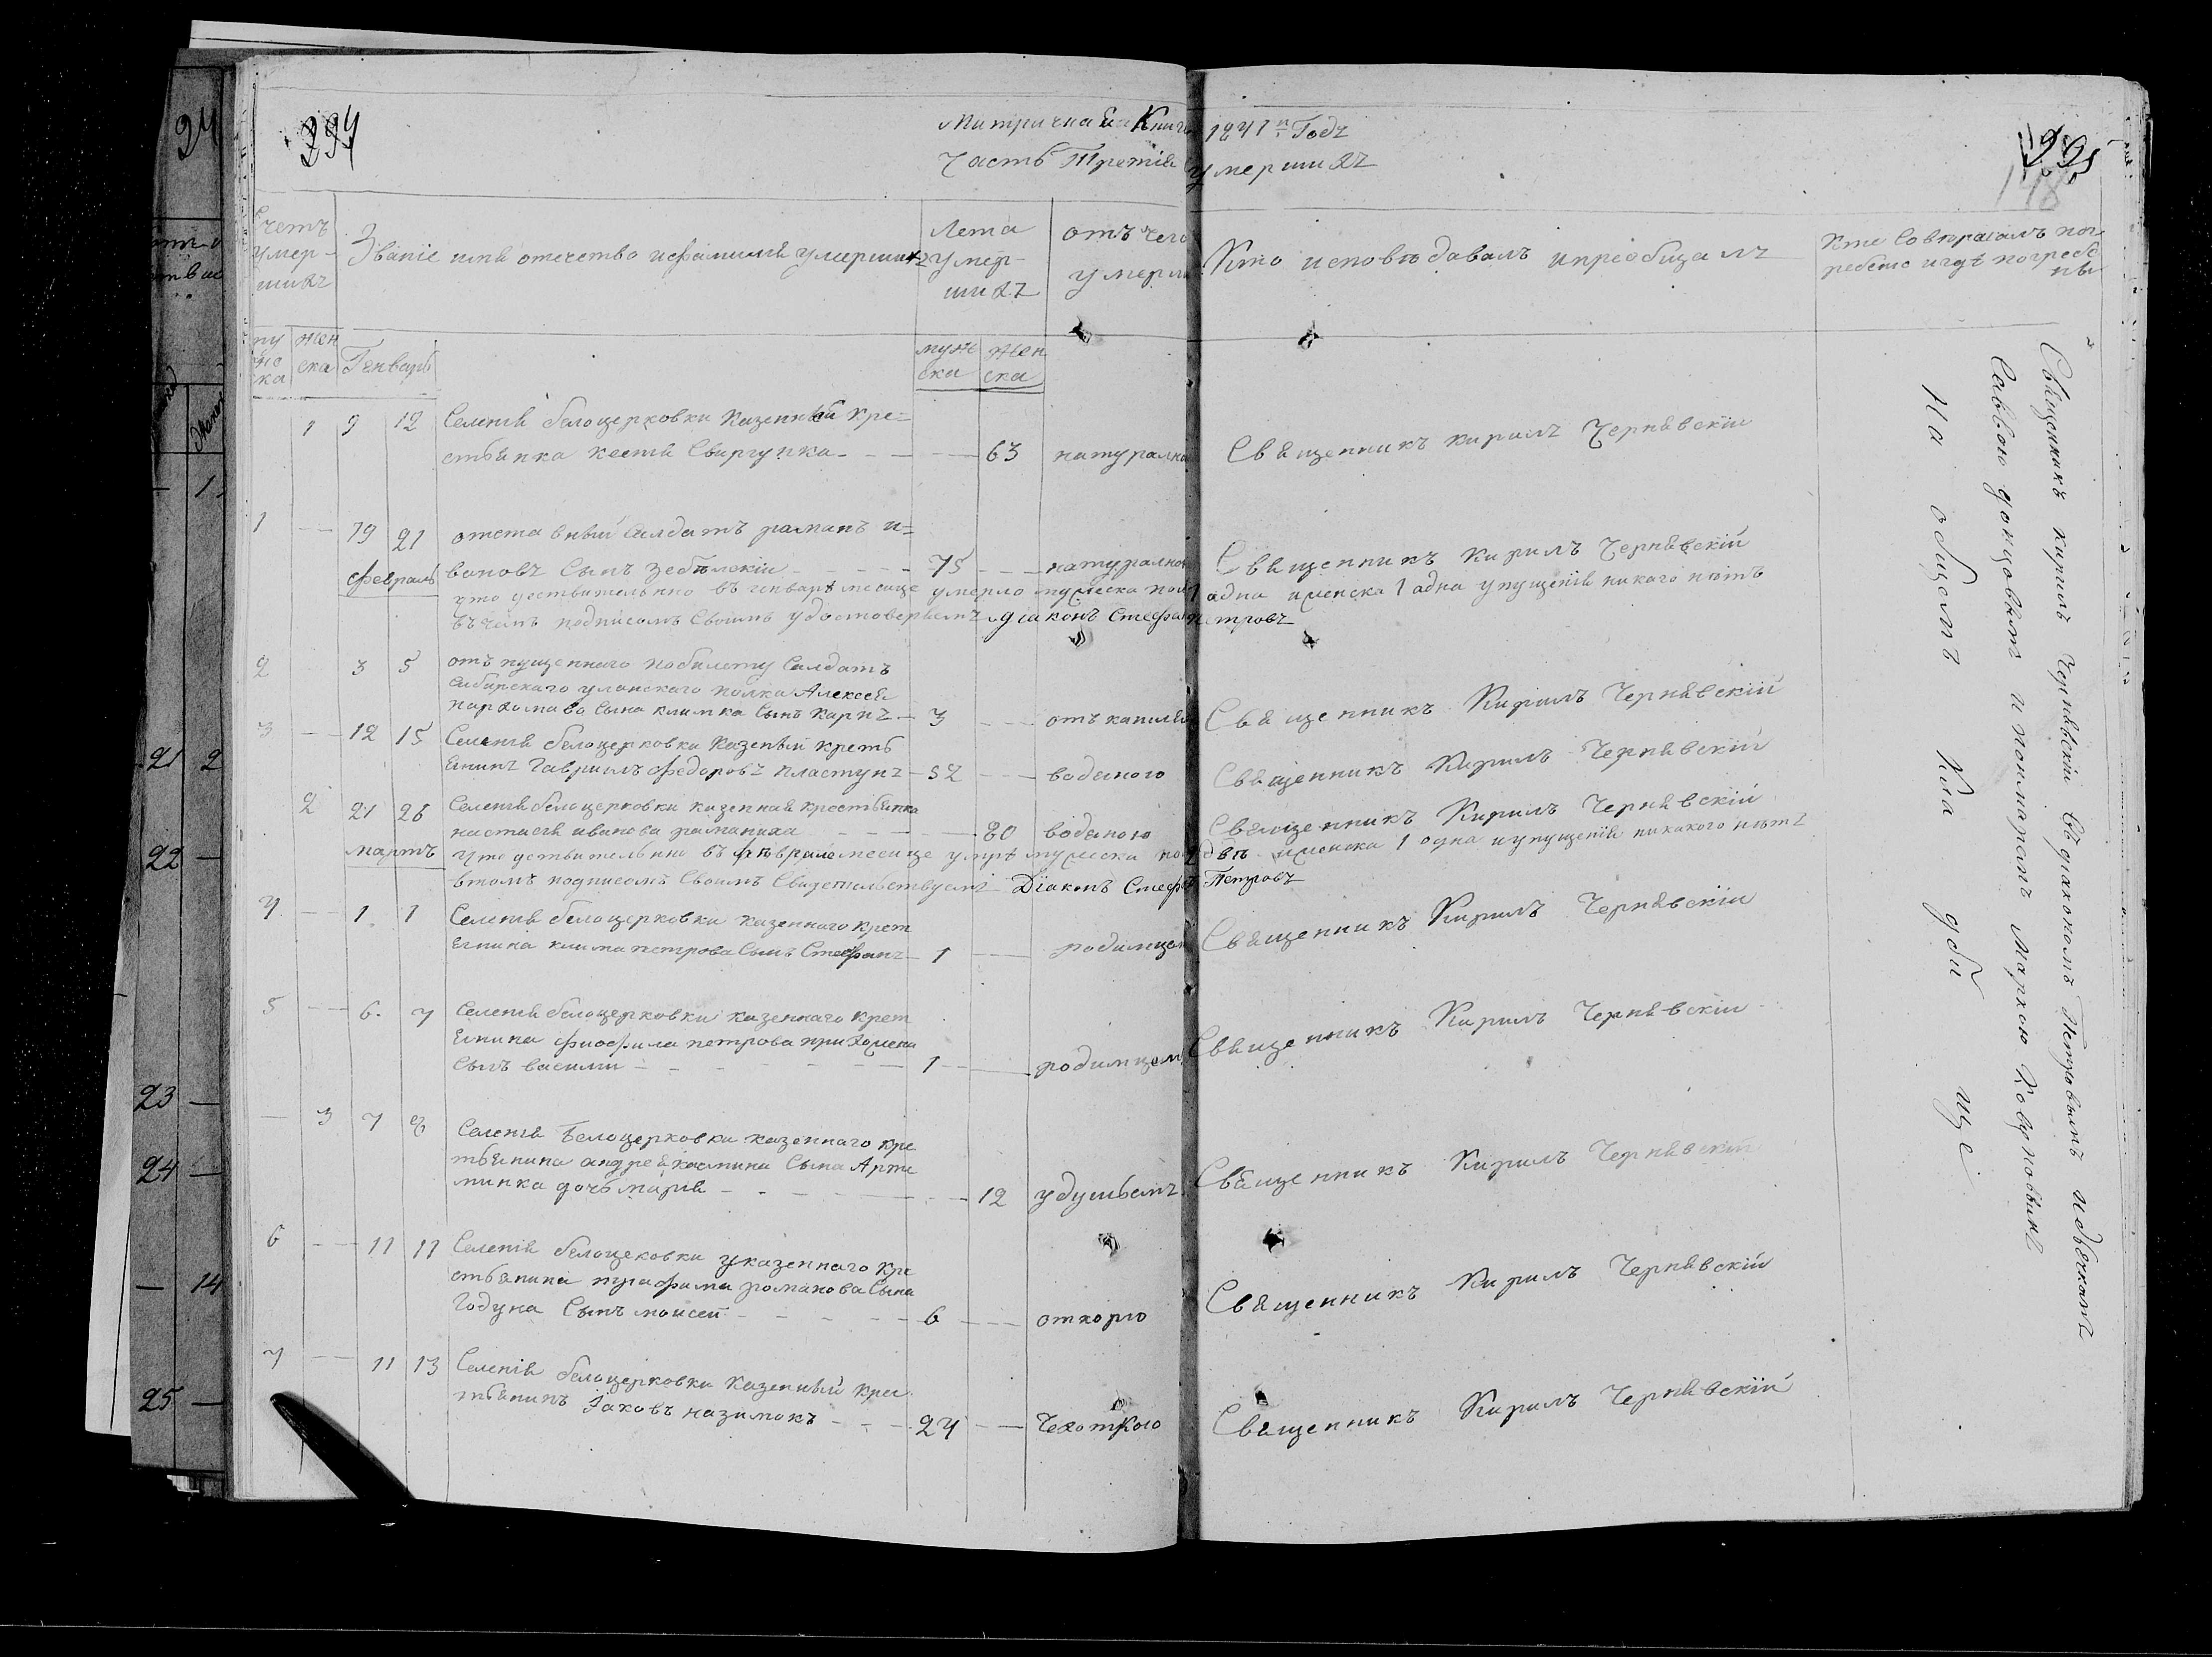 Митричная Книга 1841й Годъ
Часть Третія умершихъ
Счетъ умершихъ
Званіе имя отечество ифамилия умершихъ
Лета умершихъ
отъ чего умерли
Кто исповѣдавалъ ипреобщалъ
Кто Совершалъ погребение игдѣ погребены
муже ска
жен ска
Генварь
муже ска
жен ска
1 9 12 Селенія белоцерковки Казенный кре=
стьянка Свиргунка 63 натурално Священникъ кирилъ Чернявскій
1 19 21 отставный Салдатъ раманъ и=
вановъ Сынъ 75 натурално Священникъ Кирилъ Чернявскій
Февраль
что дествительно въ генварѣ месеце умерло мужеска пол 1 адна иженска 1 адна упущенія никаго нѣтъ
въ чемъ подписомъ Своимъ удостоверяемъ діаконъ Стефан Петровъ
2 3 5 отъ пущеннаго побилету Салдатъ
Сибирскаго уланскаго полка Алексея
пархомава Сына климка Сынъ карпъ 3 откашля Священникъ Кирилъ Чернявскій
3 12 15 Селенія белоцерковки Казеный креть
янинъ Гаврилъ Федоровъ пластунъ 52 водяного Священникъ Кирилъ Чернявскій
2 21 28 Селенія белоцерковки казенная крестьянка
настасия иванова раманиха 80 водяною Священникъ Кирилъ Чернявскій
мартъ
Что дествительно въ февралемесице умрѣ мужеска пол два иженска 1 одна иупущенія никакого нѣтъ
втомъ подписомъ Своимъ Свидетельствуемъ Діаконъ Стефа Петровъ
4 1 1 Селенія белоцерковки казеннаго крет
янина клима петрова Сынъ Стефанъ 1 родимцем Священникъ Кирилъ Чернявскій
5 6 7 Селенія белоцерковки казеннаго крет
янина фиофила петрова
Сынъ василии 1 родимцем Священникъ Кирилъ Чернявскій
3 7 8 Селенія белоцерковки казеннаго кре
тьянина андрея касмина Сына Арти
минка дочь марія 12 удушьемъ Священникъ Кирилъ Чернявскій
6 11 11 Селенія белоцековки указеннаго кре
стьянина трафима романова Сына
Годуна Сынъ моисей 6 откорю Священникъ Кирилъ Чернявскій
7 11 13 Селенія белоцерковки Казенный крес
тьянинъ Iаковъ назимокъ 24 Чехоткою Священникъ Кирилъ Чернявскій
Священникъ кирилъ Чернявскій Съ діакономъ Петровымъ идьячкамъ
Саввою донцовымъ и пономаремъ Маркомъ
На общемъ Кла дби ще